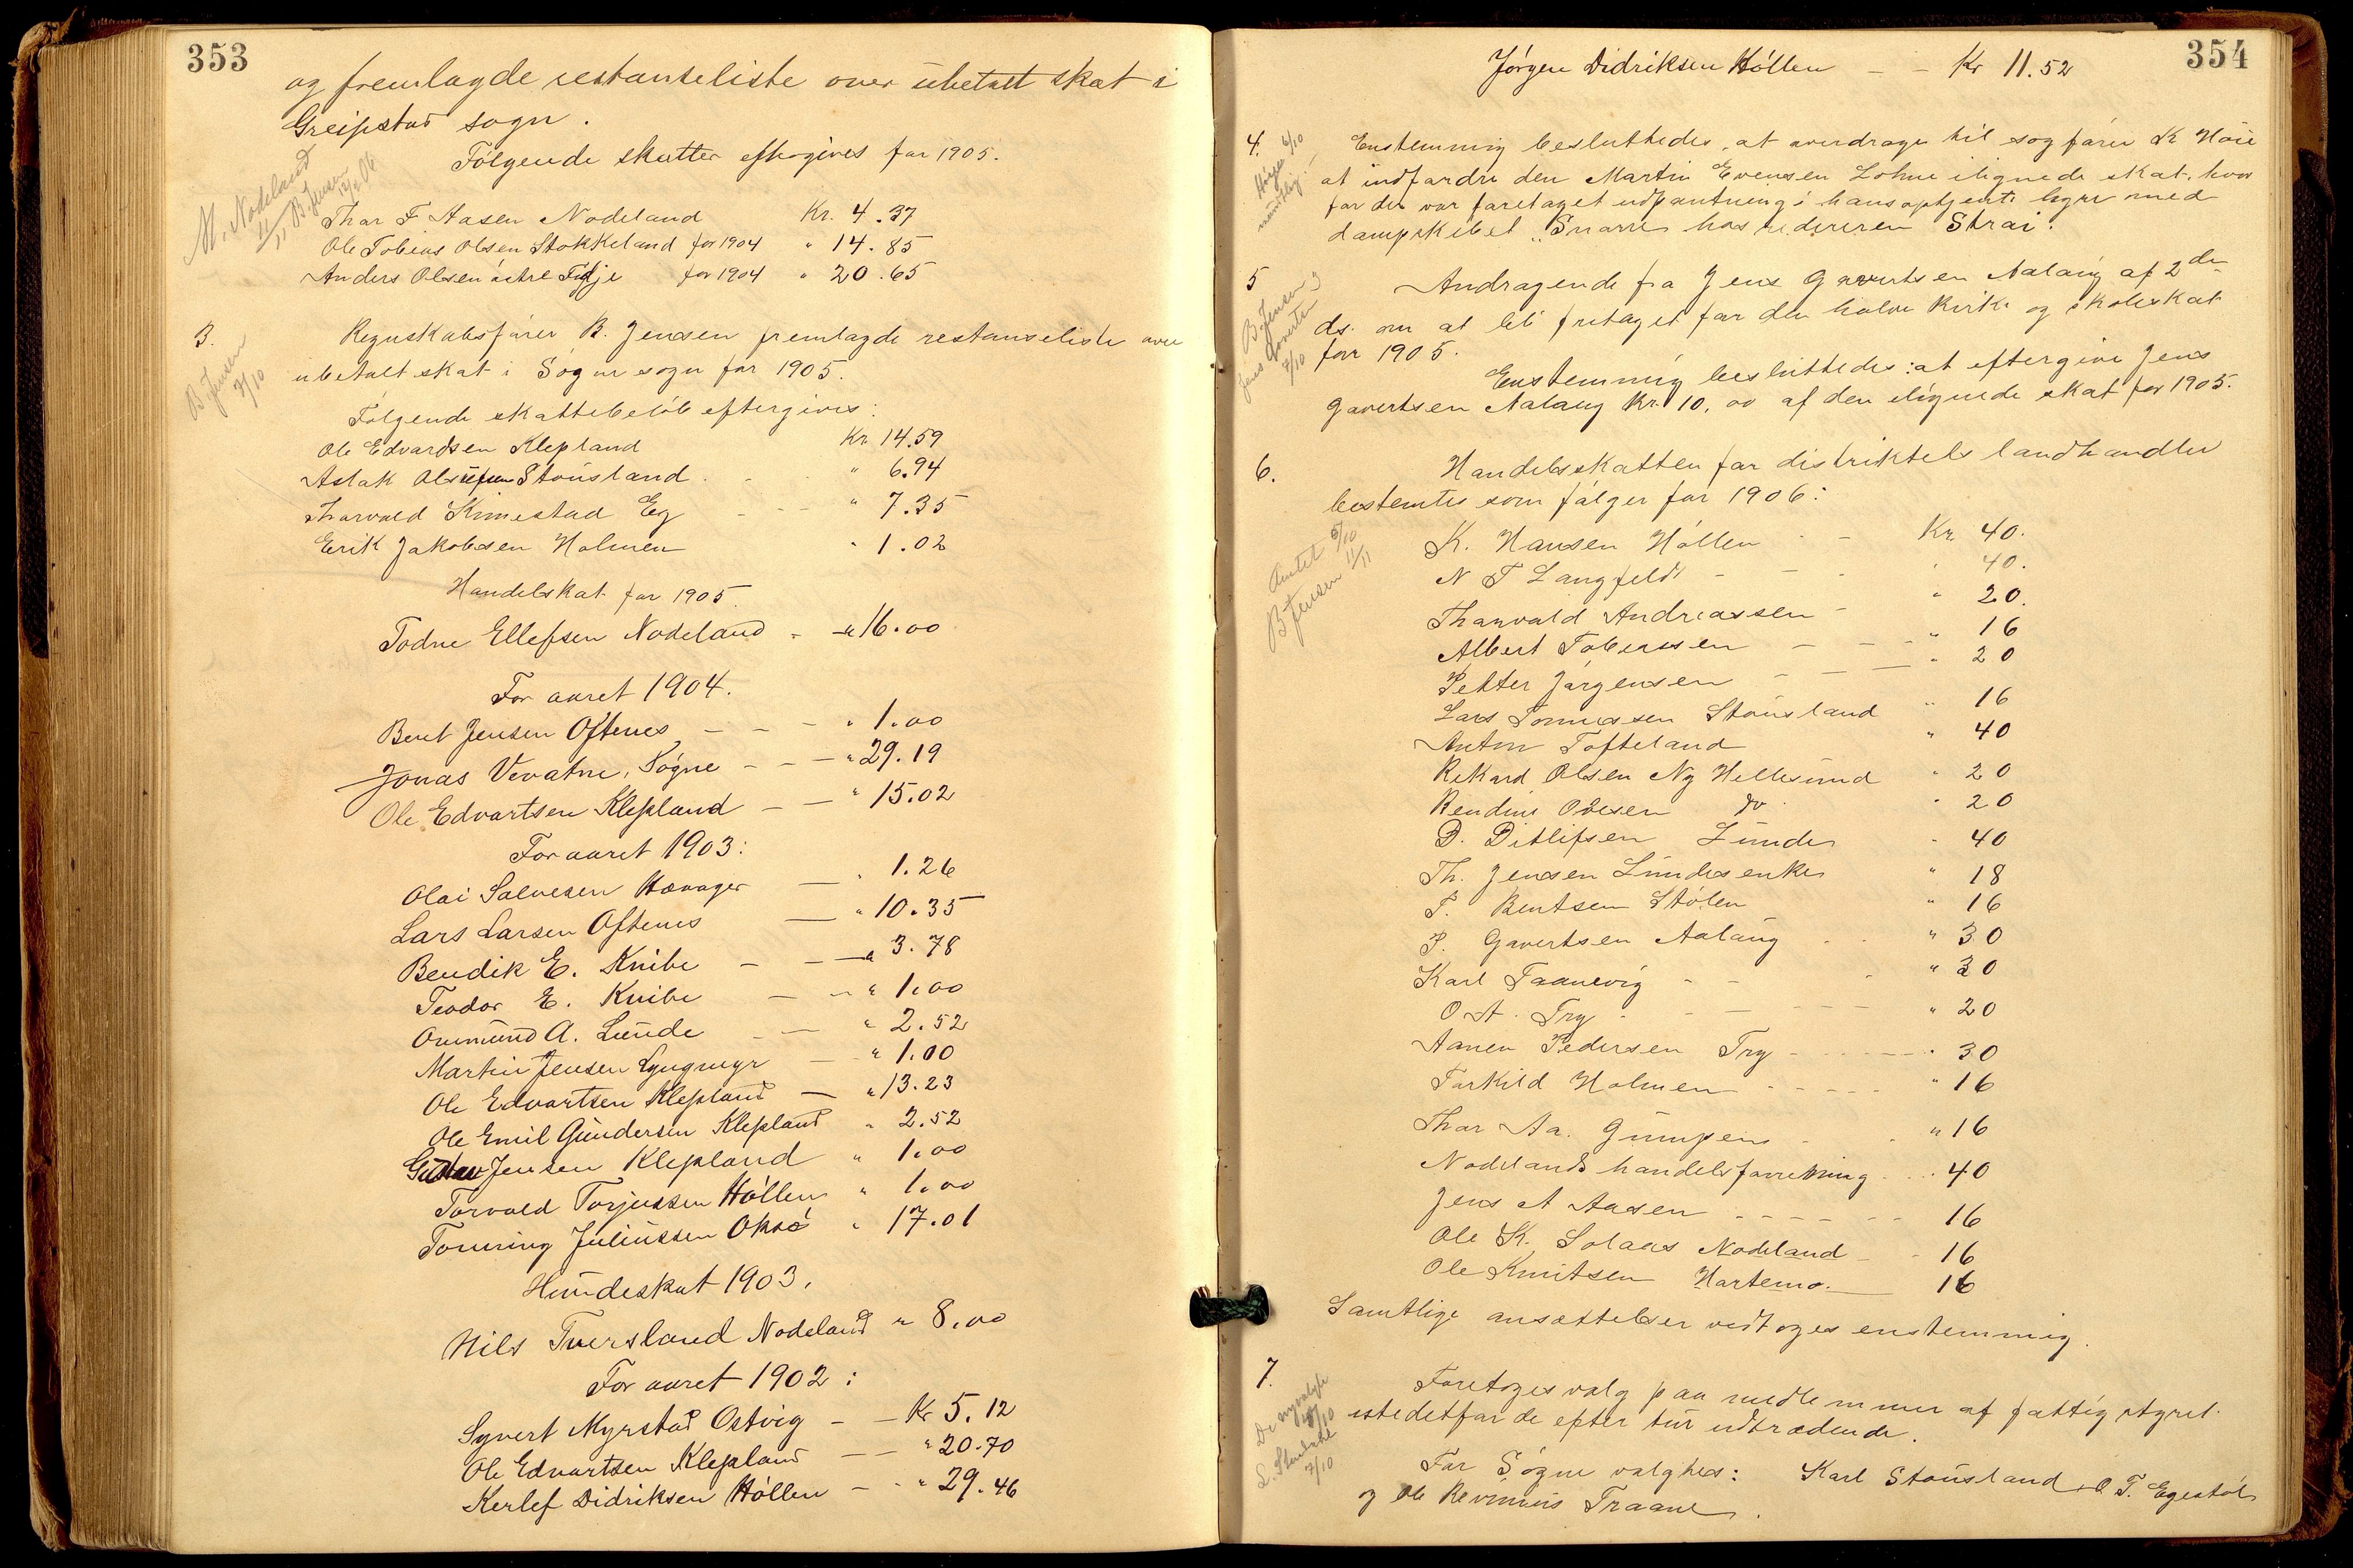 353
og fremlagde restanseliste over ubetalt skat i
Greipstad sogn.
Følgende skatter eftergives for 1905.
M. Nodeland
11/11 B. Jensen 12/11 06
Thor F Aasen Nodeland Kr. 4.37
Ole Tobias Olsen Stokkeland for 1904 " 14.85
Anders Olsen østre Tidje for 1904 " 20.65
3. Regnskabsfører B. Jensen fremlagde restanseliste over
B Jensen
7/10
ubetalt skat i Søgne sogn for 1905.
Følgende skattebeløb eftergives:
Ole Edvardsen Klepland Kr. 14.59
Aslak Stousland " 6.94
Thorvald Kimestad Eg - - - " 7.35
Erik Jakobsen Holmen " 1.02
Handelskat for 1905.
Todne Ellefsen Nodeland - " 16.00
For aaret 1904.
Bent Jensen Oftenes - - - " 1.00
Jonas Vevatne, Søgne - - - " 29.19
Ole Edvartsen Klepland - - " 15.02
For aaret 1903:
Olai Salvesen Hævager - " 1.26
Lars Larsen Oftenes - " 10.35
Bendik E. Knibe - - - " 3.78
Teodor E. Knibe - - " 1.00
Ommund A. Lunde - - " 2.52
Martin Jensen Lyngmyr - " 1.00
Ole Edvartsen Klepland - " 13.23
Ole Emil Gundersen Klepland " 2.52
Gustav Jensen Klepland " 1.00
Torvald Torjussen Høllen " 1.00
Tønning Juliussen Oksø " 17.01
Hundeskat 1903.
Nils Tversland Nodeland " 8.00
For aaret 1902:
Syvert Myrstad Ostvig - - Kr 5.12
Ole Edvartsen Klepland - - " 20.70
Kerlef Didriksen Høllen - - " 29.46
354
Jørgen Didriksen Høllen - - Kr 11.52
4. Enstemmig besluttedes, at overdrage til sagfører K Høie
Høye 6/10
mundtlig!
at indfordre den Martin Evensen Lohne ilignede skat, hvor
for der var foretaget udpantning i hans optjente hyre med
dampskibet "Snarre" hos rederen Strai.
5 Andragende fra Jens Gavertsen Aalaug af 2den
B. Jensen og
Jens Gavertsen
7/10
ds. om at bli fritaget for den halve kirke og skoleskat
for 1905.
Enstemmig besluttedes: at eftergive Jens
Gavertsen Aalaug Kr 10,00 af den ilignede skat for 1905.
6. Handelsskatten for distriktets landhandler
bestemtes som følger for 1906:
Amtet 5/10
B Jensen 11/11
K. Hansen Høllen - - Kr. 40.
N T Langfeldt - - " 40.
Thorvald Andreassen - " 20.
Albert Tobiassen - - - " 16
Petter Jørgensen - - - " 20
Lars Tommassen Stousland " 16
Anton Tofteland " 40
Rikard Olsen Ny Hellesund " 20
Bendine Olsen do " 20
D. Ditlifsen Lunde " 40
Th. Jensen Lundes enke " 18
T. Bentsen Stølen " 16
P. Gavertsen Aalaug - - " 30
Karl Faanevig - - - " 30
O. A. Try - - - - " 20
Aanen Pedersen Try - - - - " 30
Torkild Holmen - - - - - " 16
Thor Aa. Gumpens - - " 16
Nodelands handelsforretning - - 40
Jens A Aasen - - - - - - 16
Ole K. Solaas Nodeland - - 16
Ole Knutsen Hortemo. - 16
Samtlige ansættelser vedtoges enstemmig.
7. Foretoges valg paa medlemmer af fattigstyret
De nyvalgte
7/10
7/10
istedetfor de efter tur udtrædende.
For Søgne valgtes: Karl Stousland, O T. Egestøl
og Ole Traane.